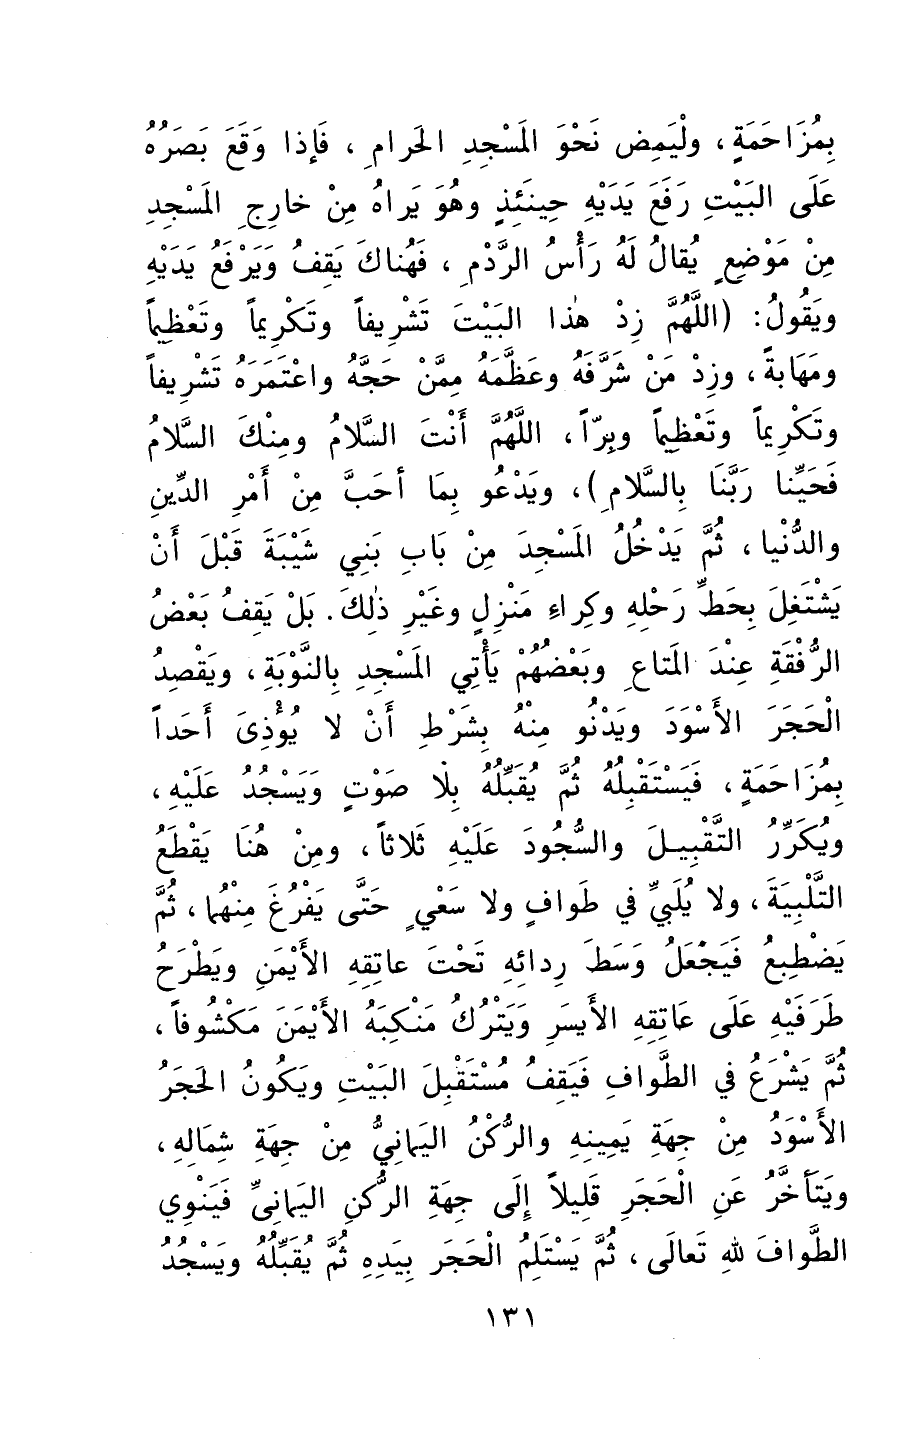 بِمُزَاحَمَةٍ، ولْيَمِض نَحْوَ المَسْجِدِ الحَرامِ، فَإذا وَقَعَ بَصَرُهُ
عَلَى البَيْتِ رَفَعَ يَدَيْهِ حِينَئذٍ وهُوَ يَراهُ مِنْ خارِجِ المَسْجِدِ
مِنْ مَوْضِعٍ يُقالُ لَهُ رَأْسُ الرَّدْمِ، فَهُناكَ يَقِفُ وَيَرْفَعُ يَدَيْهِ
ويَقُولُ: (اللَّهُمَّ زِدْ هٰذا البَيْتَ تَشْرِيفاً وتَكْرِيماً وتَعْظِيماً
ومَهَابةً، وزِدْ مَنْ شَرَّفَهُ وعَظَّمَهُ مِمَّنْ حَجَّهُ واعْتَمَرَهُ تَشْرِيفاً
وتَكْرِيماً وتَعْظِيماً وبِرّاً، اللَّهُمَّ أَنْتَ السَّلامُ ومِنْكَ السَّلامُ
فَحَيِّنا رَبَّنَا بِالسَّلامِ)، ويَدْعُو بِمَا أحَبَّ مِنْ أَمْرِ الدِّينِ
والدُّنْيا، ثُمَّ يَدْخُلُ المَسْجِدَ مِنْ بَابِ بَنِي شَيْبَةَ قَبْلَ أَنْ
يَشْتَغِلَ بِحَطِّ رَحْلِهِ وكِراءِ مَنْزِلٍ وغَيْرِ ذٰلِكَ. بَلْ يَقِفُ بَعْضُ
الرُّفْقَةِ عِنْدَ المَتاعِ وبَعْضُهُمْ يَأْتِي المَسْجِدِ بِالنَّوْبَةِ، ويَقْصِدُ
الْحَجَرَ الأَسْوَدَ ويَدْنُو مِنْهُ بِشَرْطِ أَنْ لا يُؤْذِىَ أَحَداً
بِمُزَاحَمَةٍ، فَيَسْتَقْبِلُهُ ثُمَّ يُقَبِّلُهُ بِلا صَوْتٍ وَيَسْجُدُ عَلَيْهِ،
ويُكَرِّرُ التَّقْبِيلَ والسُّجُودَ عَلَيْهِ ثَلاثاً، ومِنْ هُنَا يَقْطَعُ
التَّلْبِيَةَ، ولا يُلَبِّي في طَوافٍ ولا سَعْيٍ حَتَّى يَفْرُغَ مِنْهُما، ثُمَّ
يَضْطَبِعُ فَيَجْعَلُ وَسَطَ رِدائِهِ تَحْتَ عاتِقِهِ الأَيْمَنِ ويَطْرَحُ
طَرَفَيْهِ عَلَى عَاتِقِهِ الأَيسَرِ وَيَتْرُكُ مَنْكِبَهُ الأَيْمَنَ مَكْشُوفاً،
ثُمَّ يَشْرَعُ في الطَّوافِ فَيَقِفُ مُسْتَقْبِلَ البَيْتِ ويَكُونُ الحَجَرُ
الأَسْوَدُ مِنْ جِهَةِ يَمِينِهِ والرُّكْنُ اليَمانِيُّ مِنْ جِهَةِ شِمَالِهِ،
ويَتَأَخَّرُ عَنِ الْحَجَرِ قَلِيلاً إِلَى جِهَةِ الرُّكنِ اليَمانِيِّ فَيَنْوِي
الطَّوافَ للهِ تَعالَى، ثُمَّ يَسْتَلِمُ الْحَجَر بِيَدِهِ ثُمَّ يُقَبِّلُهُ ويَسْجُدُ
١٣١